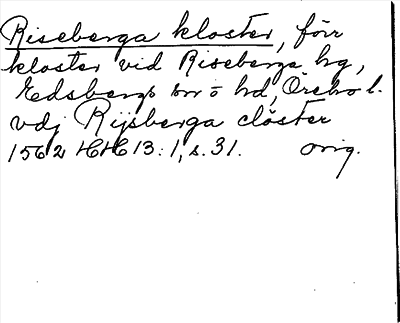 Riseberga kloster, förr
kloster vid Riseberga hg,
Edsbergs sn o hd, Örebro l.
vdj Rijsberga clöster
1562 HH 13:1, s. 31. orig.